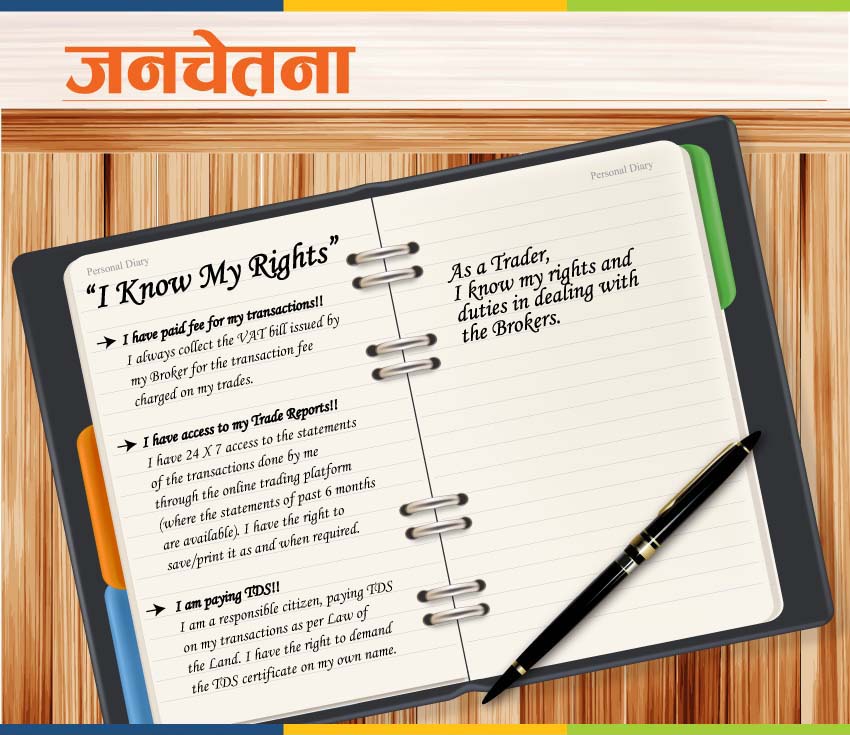 जनचेतना
Personal Diary
“I Know My Rights”
I have paid fee for my transactions!!
I always collect the VAT bill issued by
my Broker for the transaction fee
charged on my trades.
I have access to my Trade Reports!!
I have 24 X 7 access to the statements
of the transactions done by me
through the online trading platform
(where the statements of past 6 months
are available). I have the right to
save/print it as and when required.
I am paying TDS!!
I am a responsible citizen, paying TDS
on my transactions as per Law of
the Land. I have the right to demand
the TDS certificate on my own name.
Personal Diary
As a Trader,
I know my rights and
duties in dealing with
the Brokers.